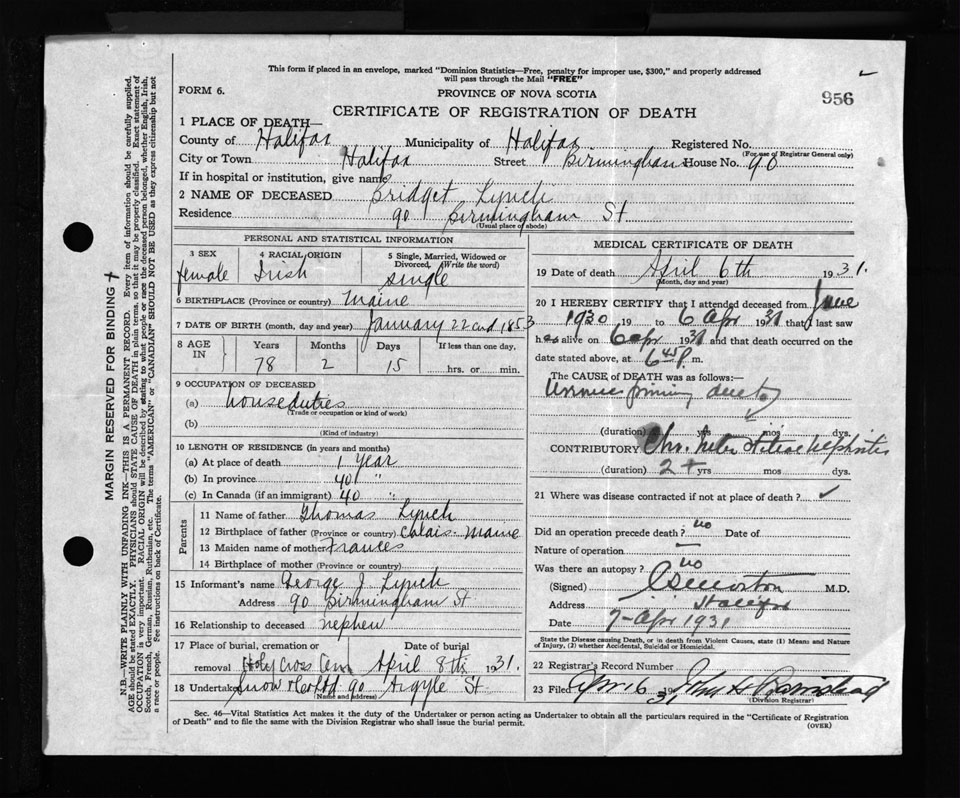 This form if placed in an envelope, marked "Dominion Statistics—Free, penalty for improper use, $300," and properly addressed
will pass through the Mail "FREE"
FORM 6.
PROVINCE OF NOVA SCOTIA
956
CERTIFICATE OF REGISTRATION OF DEATH
1 PLACE OF DEATH—
County of Halifax Municipality of Halifax Registered No.
(For use of Registrar General only)
City or Town Halifax Street Birmingham House No. 90
If in hospital or institution, give name
2 NAME OF DECEASED Bridget Lynch
Residence 90 Birmingham St
(Usual place of abode)
PERSONAL AND STATISTICAL INFORMATION
3 SEX 4 RACIAL ORIGIN 5 Single, Married, Widowed or
Divorced (Write the word)
female Irish single
6 BIRTHPLACE (Province or country) Maine
7 DATE OF BIRTH (month, day and year) January 22nd 1853
8 AGE IN Years Months Days If less than one day,
78 2 15 hrs. or min.
9 OCCUPATION OF DECEASED
(a) house duties
(Trade of occupation or kind of work)
(b)
(Kind of industry)
10 LENGTH OF RESIDENCE (in years and months)
(a) At place of death 1 year
(b) In province 40 "
(c) In Canada (if an immigrant) 40 "
Parents
11 Name of father Thomas Lynch
12 Birthplace of father (Province or country) Calais - Maine
13 Maiden name of mother Frances
14 Birthplace of mother (Province or country)
15 Informant's name George J. Lynch
Address 90 Birmingham St
16 Relationship to deceased nephew
17 Place of burial, cremation or Date of burial
removal Holy Cross Cem April 8th 1931.
18 Undertaker Snow & Co Ltd 90 Argyle St
(Name and address)
MEDICAL CERTIFICATE OF DEATH
19 Date of death April 6th 1931.
(Month, day and year)
20 I HEREBY CERTIFY that I attended deceased from June
1930 19 to 6 Apr 1931 that I last saw
her alive on 6 apr 1931 and that death occurred on the
date stated above, at 6 45 P. m.
The CAUSE of DEATH was as follows:—
due to
(duration) yrs mos dys.
CONTRIBUTORY Chr. Nephritis
(duration) 2 + yrs mos dys.
21 Where was disease contracted if not at place of death? ✓
Did an operation precede death? no Date of
Nature of operation —
Was there an autopsy? no
(Signed) M.D.
Address Halifax
Date 7 - Apr 1931
State the Disease causing Death, or in death from Violent Causes, state (1) Means and Nature
of Injury, (2) whether Accidental, Suicidal or Homicidal.
22 Registrar's Record Number
23 Filed Apr 16 31 John H Barnstead
(Division Registrar)
Sec. 46—Vital Statistics Act makes it the duty of the Undertaker or person acting as Undertaker to obtain all the particulars required in the "Certificate of Registration
of Death" and to file the same with the Division Registrar who shall issue the burial permit.
(OVER)
MARGIN RESERVED FOR BINDING
N.B.—WRITE PLAINLY WITH UNFADING INK—THIS IS A PERMANENT RECORD. Every item of information should be carefully supplied.
AGE should be stated EXACTLY. PHYSICIANS should STATE CAUSE OF DEATH in plain terms, so that it may be properly classified. Exact statement of
OCCUPATION is very important. RACIAL ORIGIN will be described by stating to what people or race the deceased person belonged, whether English, Irish,
Scotch, French, German, Russian, Ruthenian, etc. The terms "AMERICAN" or "CANADIAN" SHOULD NOT BE USED as they express citizenship but not
a race or people. See instructions on back of Certificate.